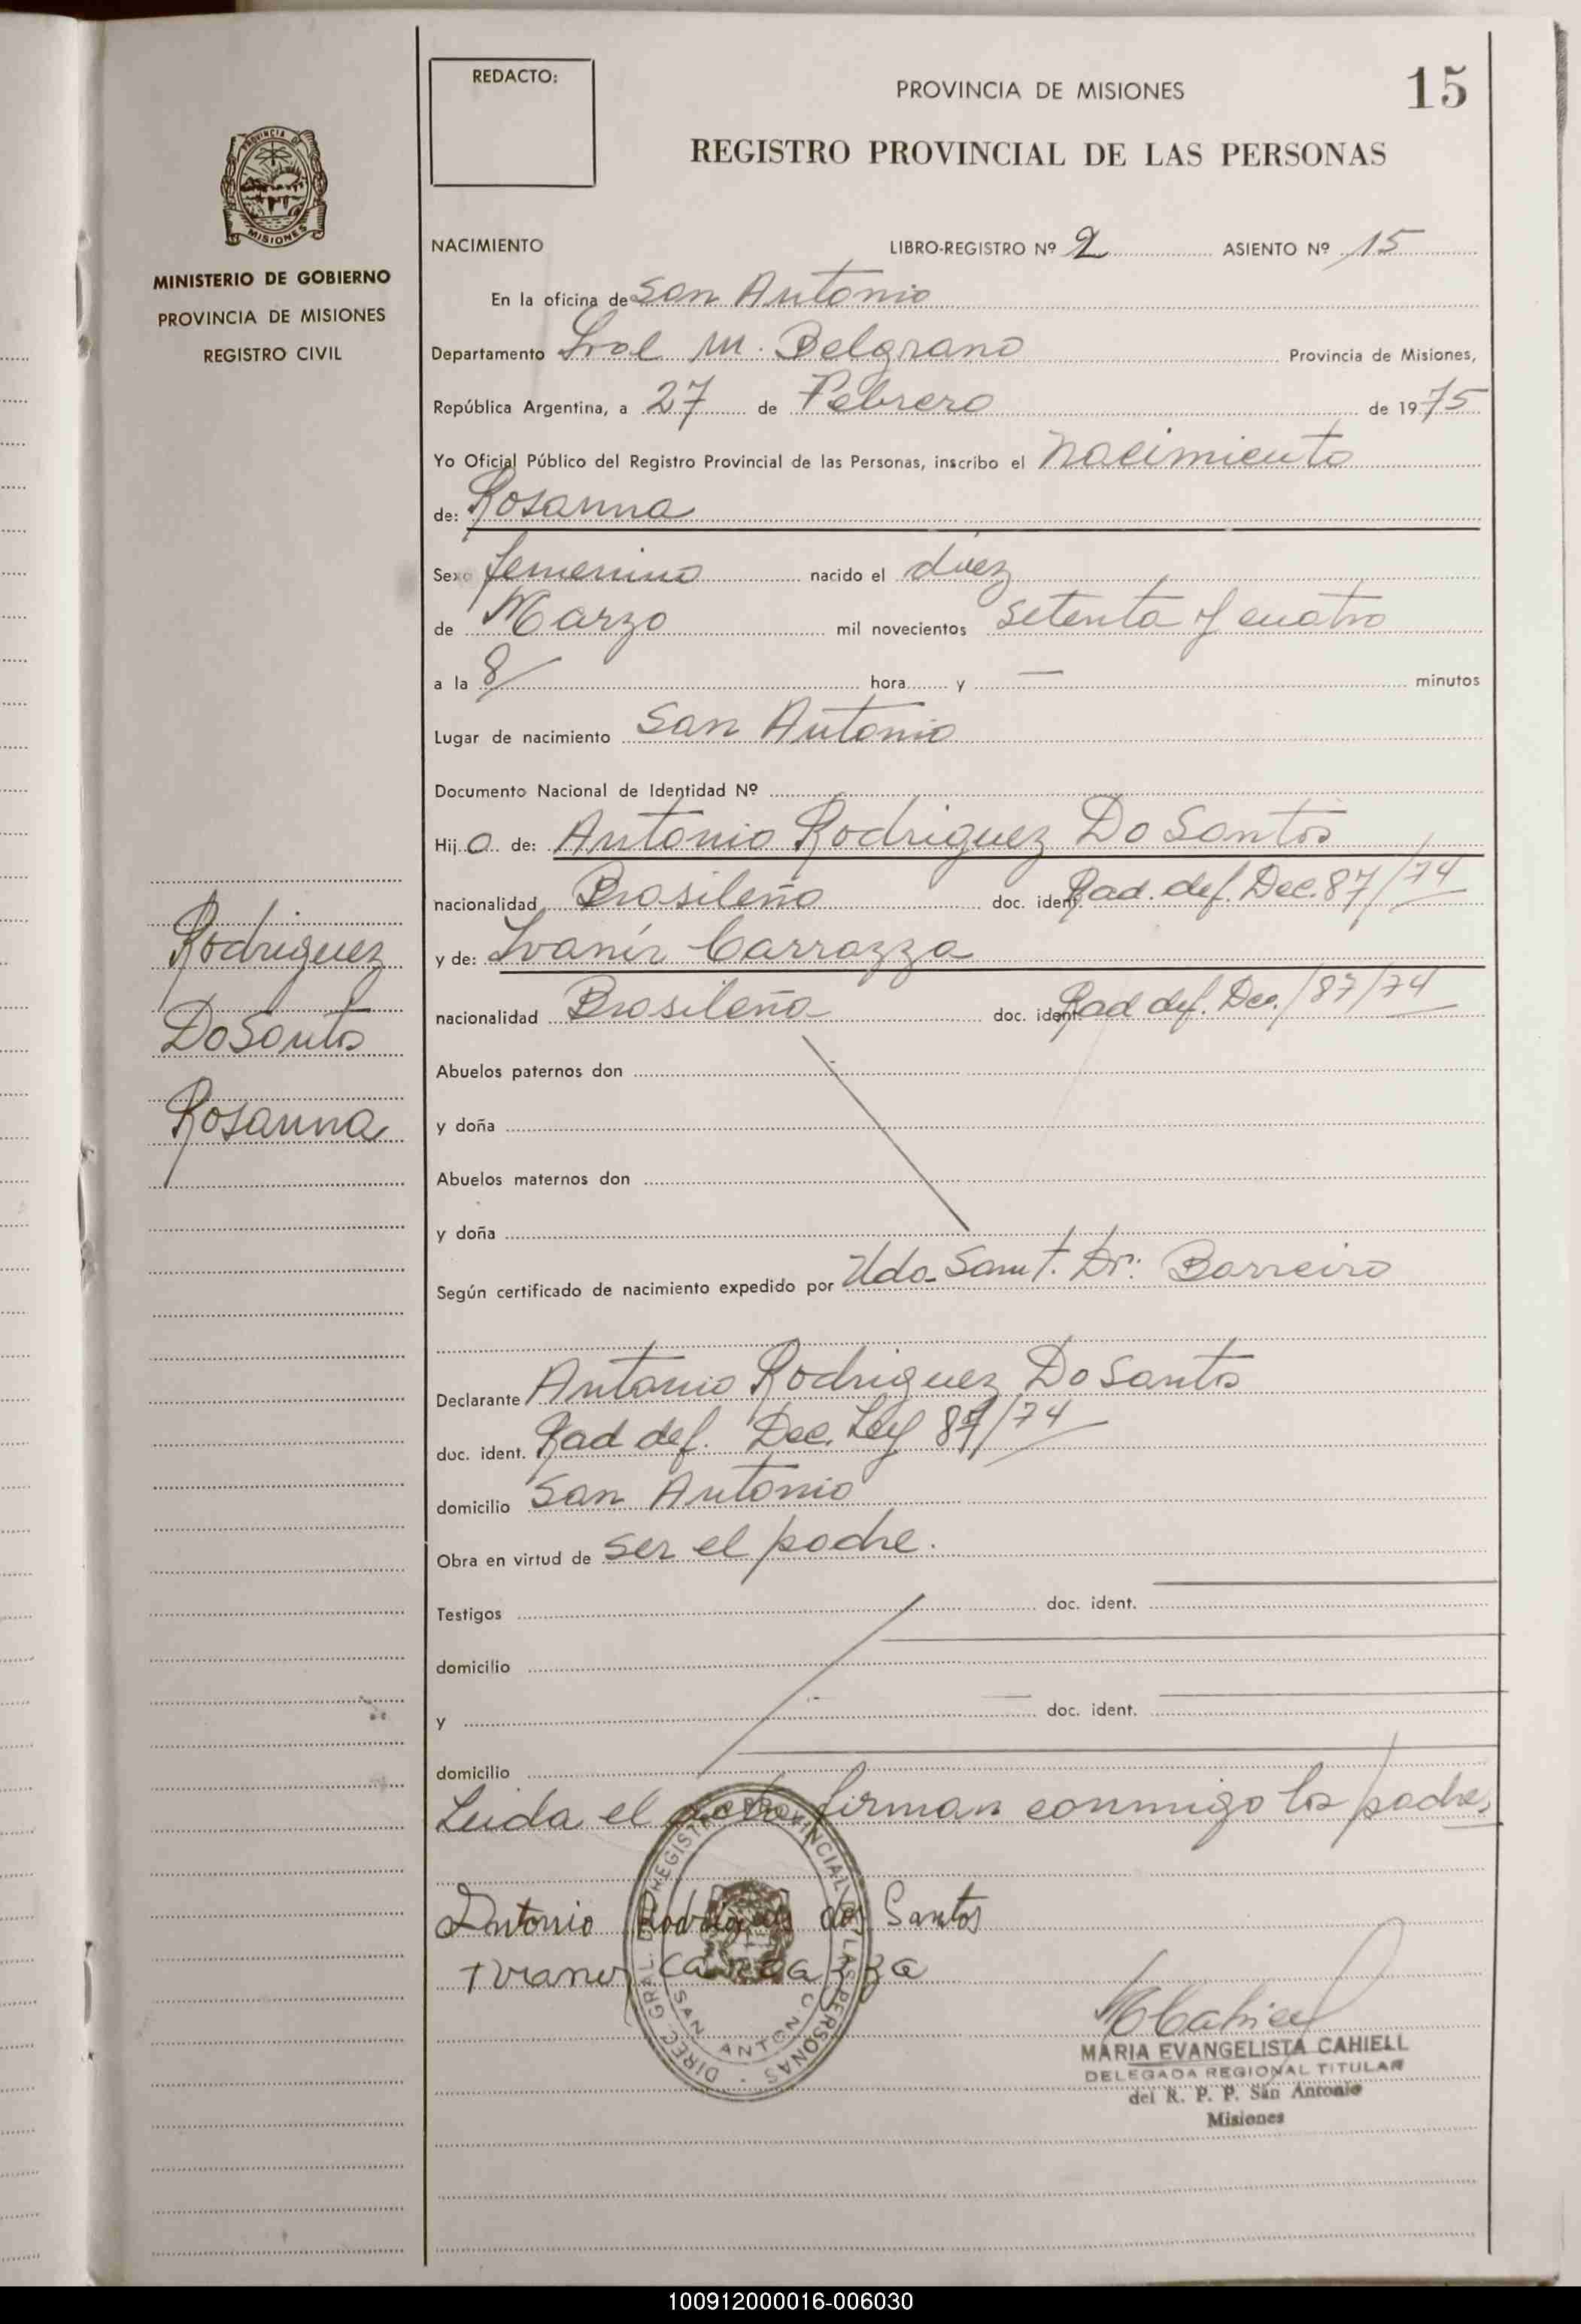 REDACTO:
PROVINCIA DE MISIONES
15
REGISTRO PROVINCIAL DE LAS PERSONAS
PROVINCIA DE
MISIONES
MINISTERIO DE GOBIERNO
PROVINCIA DE MISIONES
REGISTRO CIVIL
NACIMIENTO LIBRO-REGISTRO Nº 2 ASIENTO Nº 15
En la oficina de San Antonio
Departamento Gral M. Belgrano Provincia de Misiones,
República Argentina, a 27 de Febrero de 1975
Yo Oficial Público del Registro Provincial de las Personas, inscribo el Nacimiento
de: Rosanna
Sexo femenino nacido el diez
de Marzo mil novecientos setenta y cuatro
a la 8/ hora y — minutos
Lugar de nacimiento San Antonio
Documento Nacional de Identidad Nº
Hij a de: Antonio Rodriguez Do Santos
nacionalidad Brasileño doc. ident. Rad. def. Dec. 87/74
y de: Ivanir Carrazza
nacionalidad Brasileña doc. ident. Rad def. Dec./87/74
Rodriguez
Do Santos
Rosanna
Abuelos paternos don
y doña
Abuelos maternos don
y doña
Según certificado de nacimiento expedido por Dr: Barreiro
Declarante Antonio Rodriguez Do Santos
doc. ident. Rad def. Dec. Ley 87/74
domicilio San Antonio
Obra en virtud de ser el padre.
Testigos doc. ident.
domicilio
y doc. ident.
domicilio
Leida el acta firman conmigo los padres
Antonio Rodrigues dos Santos
Ivanir Carrazza
DIREC. GRAL. DEL REGISTRO PROVINCIAL DE LAS PERSONAS
SAN ANTONIO
MCahiell
MARIA EVANGELISTA CAHIELL
DELEGADA REGIONAL TITULAR
del R. P. P. San Antonio
Misiones
100912000016-006030